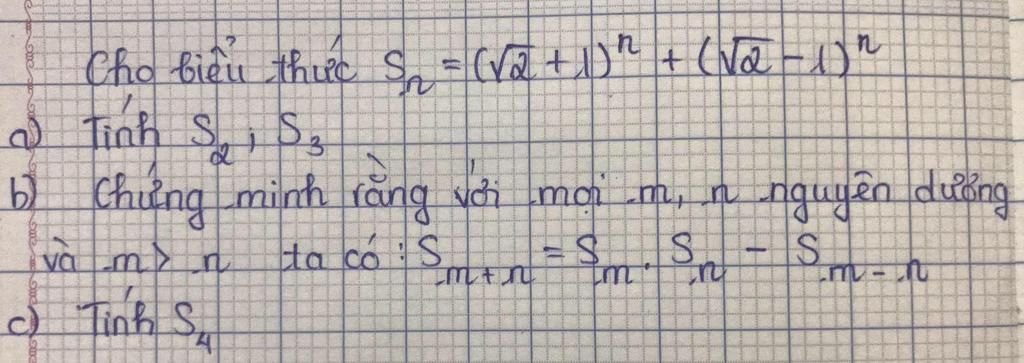 Cho biểu thức Sₙ = (√2 + 1)ⁿ + (√2 - 1)ⁿ
a) Tính S₂ ; S₃
b) Chứng minh rằng với mọi m, n nguyên dương
và m > n ta có : Sₘ₊ₙ = Sₘ . Sₙ - Sₘ₋ₙ
c) Tính S₄